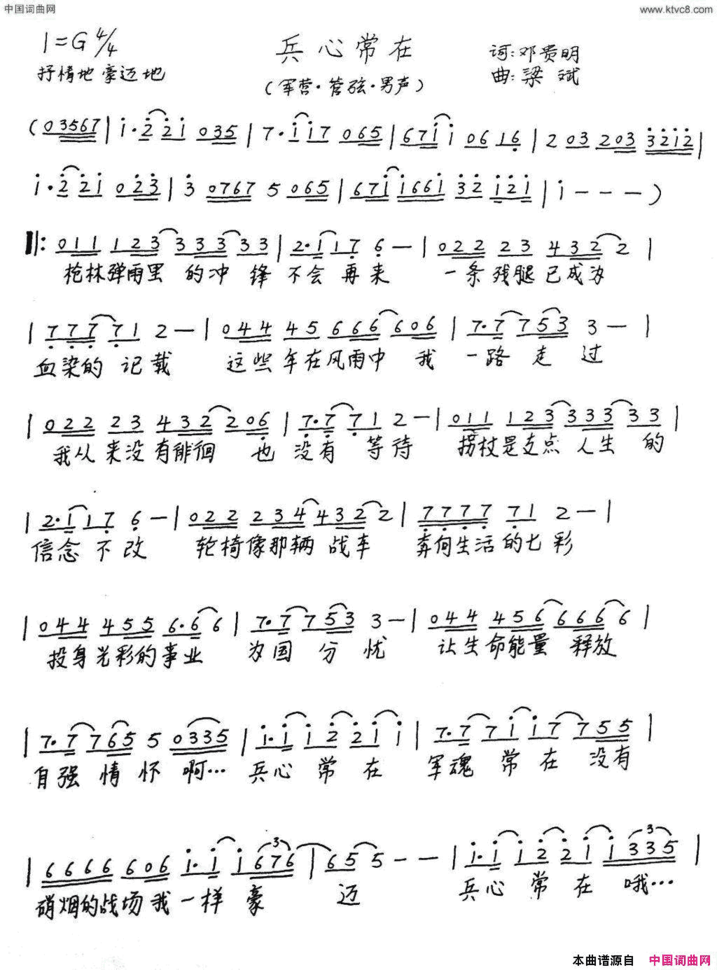 中国词曲网
www.ktvc8.com
1=G 4/4
兵心常在
词:邓贵明
抒情地 豪迈地
(军营·管弦·男声)
曲:梁斌
(03567|i·22i 035|7·ii7 065|67ii 06 16|2 03 203 32i2|
i·22i 023|3 0767 5 065|67ii66i 32 i2i|i - - -)
‖:011 123 3333 33|2·i i7 6 -|022 23 432 2|
枪林弹雨里 的冲锋 不会再来 一条残腿已成为
|777 71 2 -|044 45 666 606|7·7 753 3 -|
血染的 记载 这些年在风雨中 我 一路走过
|022 23 432 206|7·7 71 2 -|011 123 3333 33|
我从来没有徘徊 也 没有 等待 拐杖是支点 人生 的
|2·i i7 6 -|022 234 432 2|7777 71 2 -|
信念不改 轮椅像那辆 战车 奔向生活的七彩
|044 455 6·6 6|7·7 753 3 -|044 456 6666 6|
投身光彩的事业 为国 分忧 让生命能量 释放
|7·7 765 5 0335|i·i i2 2i i|7·7 7i i7 755|
自强 情怀 啊… 兵心 常在 军魂 常在 没有
|6666 606 i·i i676|65 5 - -|i·i i2 2i i335|
硝烟的战场我一样豪 迈 兵心 常在 哦…
本曲谱源自 中国词曲网